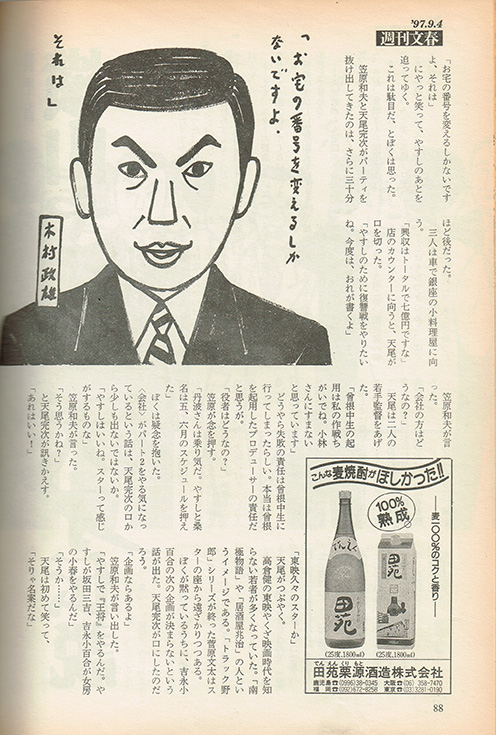 '97.9.4
週刊文春
「お宅の番号を変えるしか
ないですよ.
それは」
木村政雄
「お宅の番号を変えるしかないです
よ、それは」
にやっと笑って、やすしのあとを
追ってゆく。
これは駄目だ、とぼくは思った。
笠原和夫と天尾完次がパーティを
抜け出してきたのは、さらに三十分
ほど後だった。
三人は車で銀座の小料理屋に向
う。
「興収はトータルで七億円ですな」
店のカウンターに向うと、天尾が
口を切った。
「やすしのために復讐戦をやりたい
ね。今度は、おれが書くよ」
笠原和夫が言
った。
「会社の方はど
うなの？」
天尾は二人の
若手監督をあげ
た。
「曾根中生の起
用は私の作戦ち
がいでね。小林
さんにすまない
と思っています」
どうやら失敗の責任は曾根中生に
行ってしまったらしい。本当は曾根
を起用したプロデューサーの責任だ
と思うが。
「役者はどうなの？」
笠原が念を押す。
「丹波さんは乗り気だ。やすしと桑
名は五、六月のスケジュールを押え
た」
ぼくは疑念を抱いた。
〈会社〉がパート2をやる気になっ
ているという話は、天尾完次の口か
ら少しも出ないではないか。
「やすしはいいね。スターって感じ
がするものな」
笠原和夫が言った。
「そう思うかね？」
と天尾完次が訊きかえす。
「あれはいい！」
「東映久々のスターか」
天尾がつぶやく。
高倉健の東映やくざ映画時代を知
らない若者が多くなっていた。「南
極物語」や「居酒屋兆治」の人とい
うイメージである。「トラック野
郎」シリーズが終った菅原文太はス
ターの座から遠ざかりつつある。
ぼくが黙っているうちに、吉永小
百合の次の企画が決まらないという
話が出た。天尾完次が口にしたのだ
ろう。
「企画ならあるよ」
笠原和夫が言い出した。
「やすしで『王将』をやるんだ。や
すしが坂田三吉、吉永小百合が女房
の小春をやるんだ」
「そうか……」
天尾は初めて笑って、
「そりゃ名案だな」
こんな麦焼酎がほしかった!!
100%
熟成
━麦一〇〇%のコクと香り━
でんえん
田苑
田苑
(25度,1800ml)
(25度,1800ml)
でん えん くり もと
田苑栗源酒造株式会社
鹿児島☎(0996)38-0345 大阪☎(06) 358-7470
福 岡☎(092)672-8258 東京☎(03)3281-0190
88